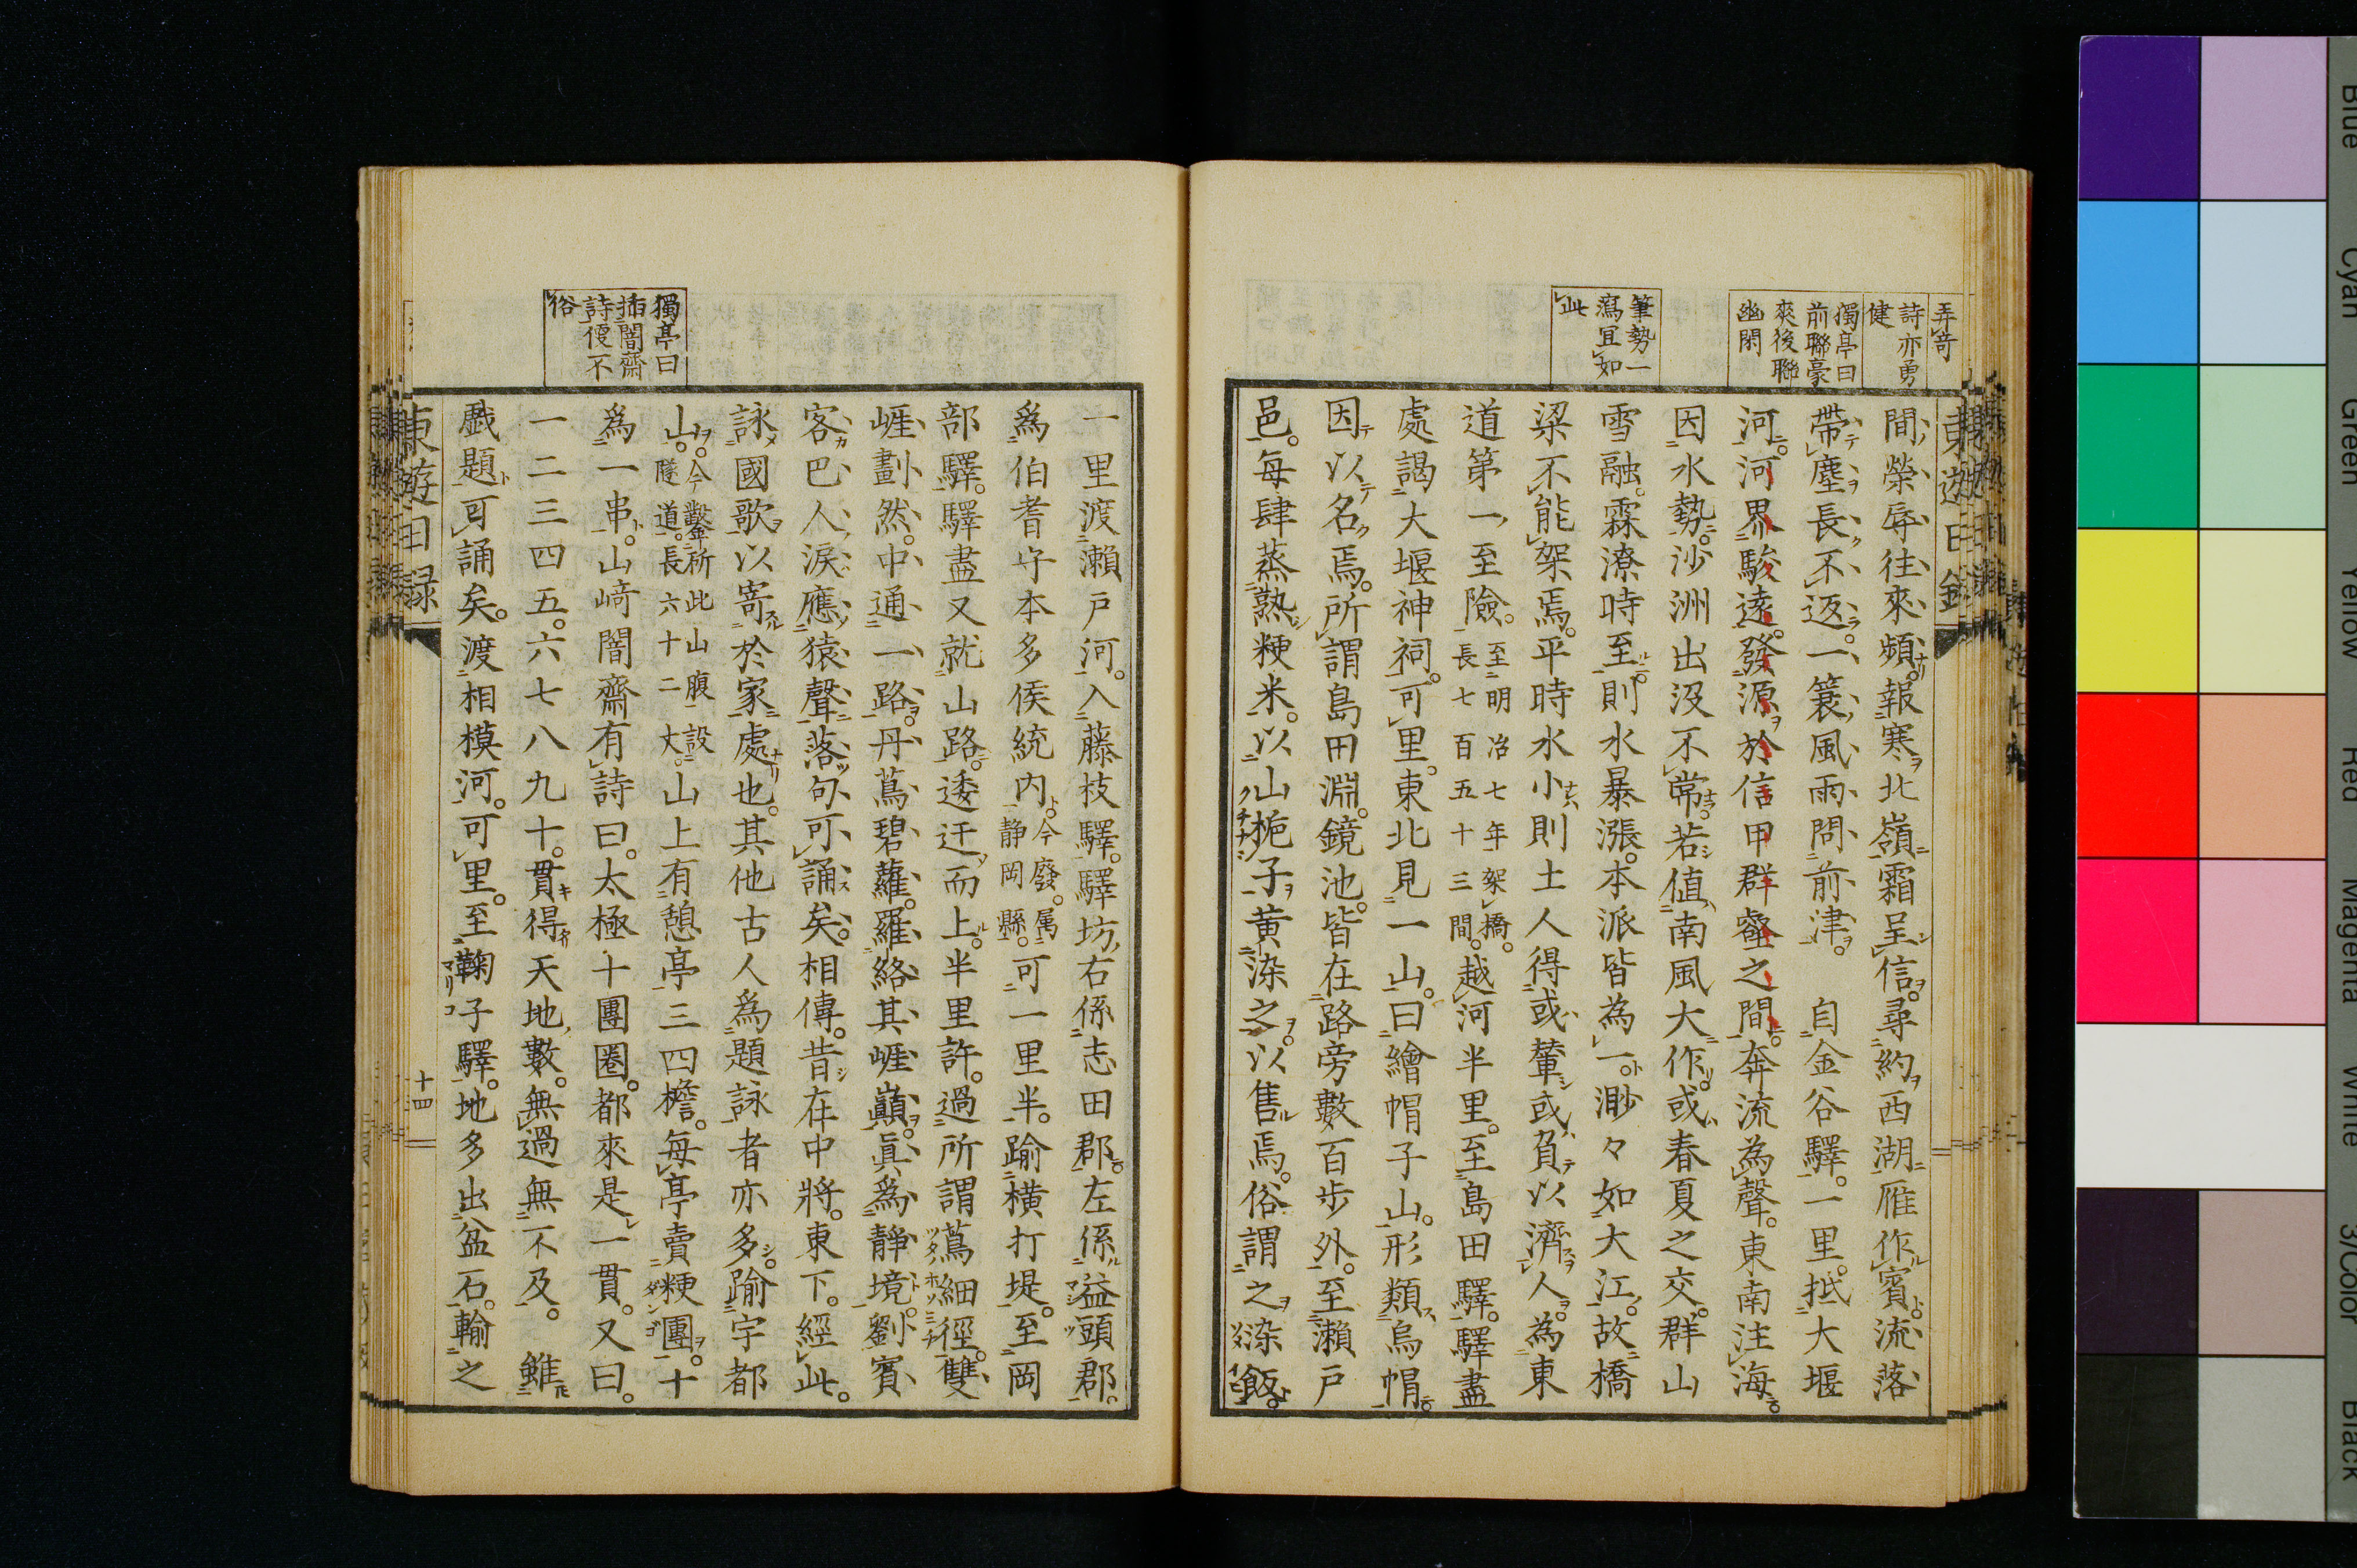 弄奇
詩亦勇
健
獨亭曰
前聯豪
爽後聯
幽閑
筆勢一
瀉宜如
此
間榮辱往來頻報寒北嶺霜呈信尋約西湖雁作賓流落
帶塵長不返一簑風雨問前津　自金谷驛一里抵大堰
河河界駿遠發源於信甲群壑之間奔流為聲東南注海
因水勢沙洲出沒不常若値南風大作或春夏之交群山
雪融霖潦時至則水暴漲本派皆為一渺々如大江故橋
梁不能架焉平時水小則土人得或輦或負以濟人為東
道第一至險至明治七年架橋長七百五十三間越河半里至島田驛驛盡
處謁大堰神祠可里東北見一山曰繪帽子山形類烏帽
因以名焉所謂島田淵鏡池皆在路旁數百步外至瀨戶
邑每肆蒸熟粳米以山梔子黃染之以售焉俗謂之染飯
一里渡瀨戶河入藤枝驛驛坊右係志田郡左係益頭郡
爲伯耆守本多侯統內今廢属靜岡縣可一里半踰橫打堤至岡
部驛驛盡又就山路逶迂而上半里許過所謂蔦細徑雙
崕劃然中通一路丹蔦碧蘿羅絡其崕巔眞爲靜境劉賓
客巴人淚應猿聲落句可誦矣相傳昔在中將東下經此
詠國歌以寄於家處也其他古人爲題詠者亦多踰宇都
山今鑿所此山腹設隧道長六十二丈山上有憩亭三四檐每亭賣粳團十
爲一串山崎闇齋有詩曰太極十團圈都來是一貫又曰
一二三四五六七八九十貫得天地數無過無不及　雖
戲題可誦矣渡相模河可里至鞠子驛地多出盆石輸之
獨亭曰
插闇齋
詩便不
俗
東遊日録
十四